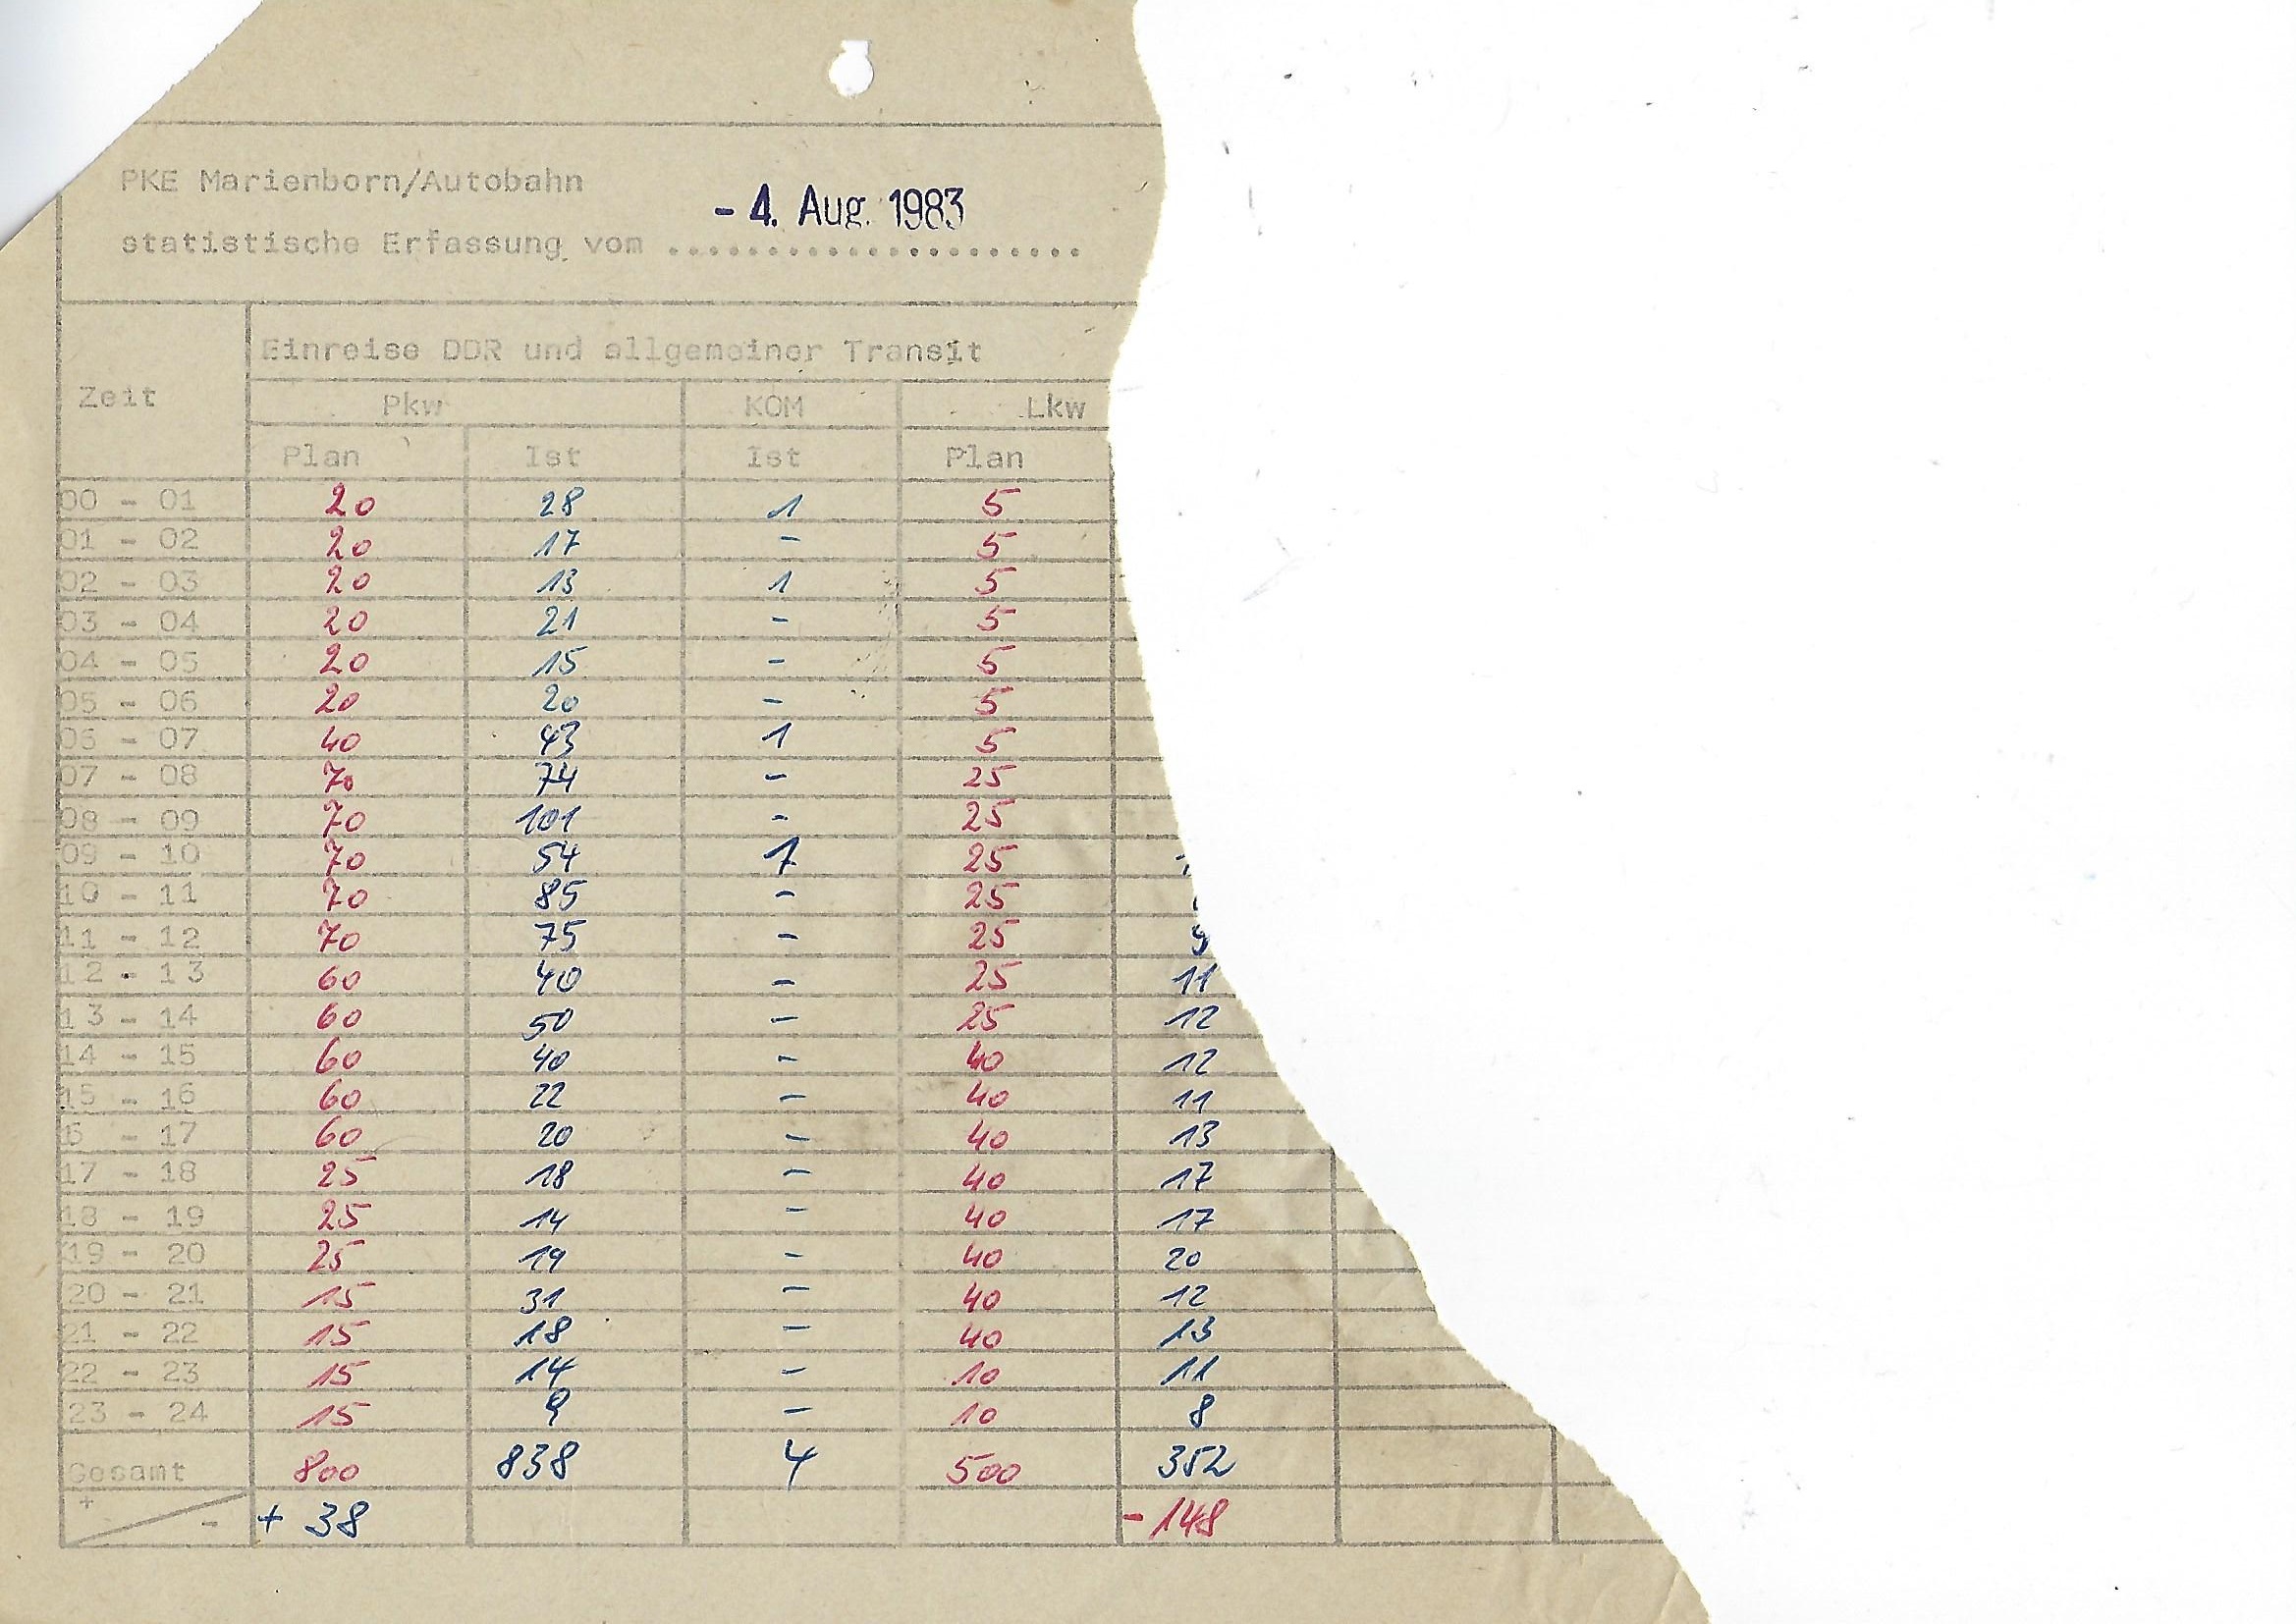 PKE Marienborn/Autobahn
- 4. Aug. 1983
statistische Erfassung vom .....................
Einreise DDR und allgemeiner Transit
Zeit
Pkw KOM Lkw
Plan Ist Ist Plan
00 - 01 20 28 1 5
01 - 02 20 17 - 5
02 - 03 20 13 1 5
03 - 04 20 21 - 5
04 - 05 20 15 - 5
05 - 06 20 20 - 5
06 - 07 40 43 1 5
07 - 08 70 74 - 25
08 - 09 70 101 - 25
09 - 10 70 54 1 25
10 - 11 70 85 - 25
11 - 12 70 75 - 25 9
12 - 13 60 40 - 25 11
13 - 14 60 50 - 25 12
14 - 15 60 40 - 40 12
15 - 16 60 22 - 40 11
6 - 17 60 20 - 40 13
17 - 18 25 18 - 40 17
18 - 19 25 14 - 40 17
19 - 20 25 19 - 40 20
20 - 21 15 31 - 40 12
21 - 22 15 18 - 40 13
22 - 23 15 14 - 10 11
23 - 24 15 9 - 10 8
Gesamt 800 838 4 500 352
+ - + 38 - 148